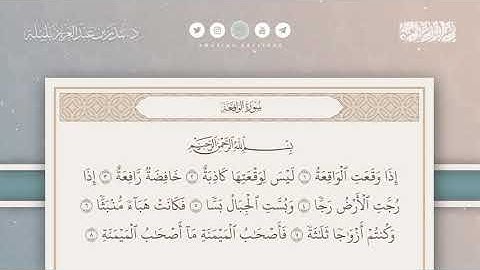 د. بندر بن عبدالعزيز بليلة
AMAZING RECITERS
سُورَةُ الوَاقِعَةِ
بِسْمِ اللَّهِ الرَّحْمَٰنِ الرَّحِيمِ
إِذَا وَقَعَتِ الْوَاقِعَةُ ١ لَيْسَ لِوَقْعَتِهَا كَاذِبَةٌ ٢ خَافِضَةٌ رَّافِعَةٌ ٣ إِذَا
رُجَّتِ الْأَرْضُ رَجًّا ٤ وَبُسَّتِ الْجِبَالُ بَسًّا ٥ فَكَانَتْ هَبَاءً مُّنۢبَثًّا ٦
وَكُنتُمْ أَزْوَٰجًا ثَلَٰثَةً ٧ فَأَصْحَٰبُ الْمَيْمَنَةِ مَا أَصْحَٰبُ الْمَيْمَنَةِ ٨